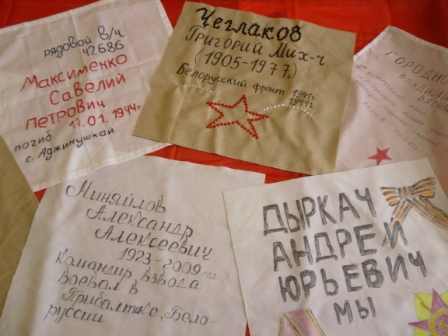 рядовой в/ч
42686
Максименко
Савелий
Петрович
погиб 11.01.1944г.
с. Аджинушкой.
Чеглаков
Григорий Мих-ч
(1905-1977г)
Белорусский фронт 1941г.
1944г.
ГОРОД
Миняйлов
Александр
Алексеевич
1923-2009гг
Командир взвода
воевал в
Прибалтике, Бело-
руссии
ДЫРКАЧ
АНДРЕЙ
ЮРЬЕВИЧ
МЫ